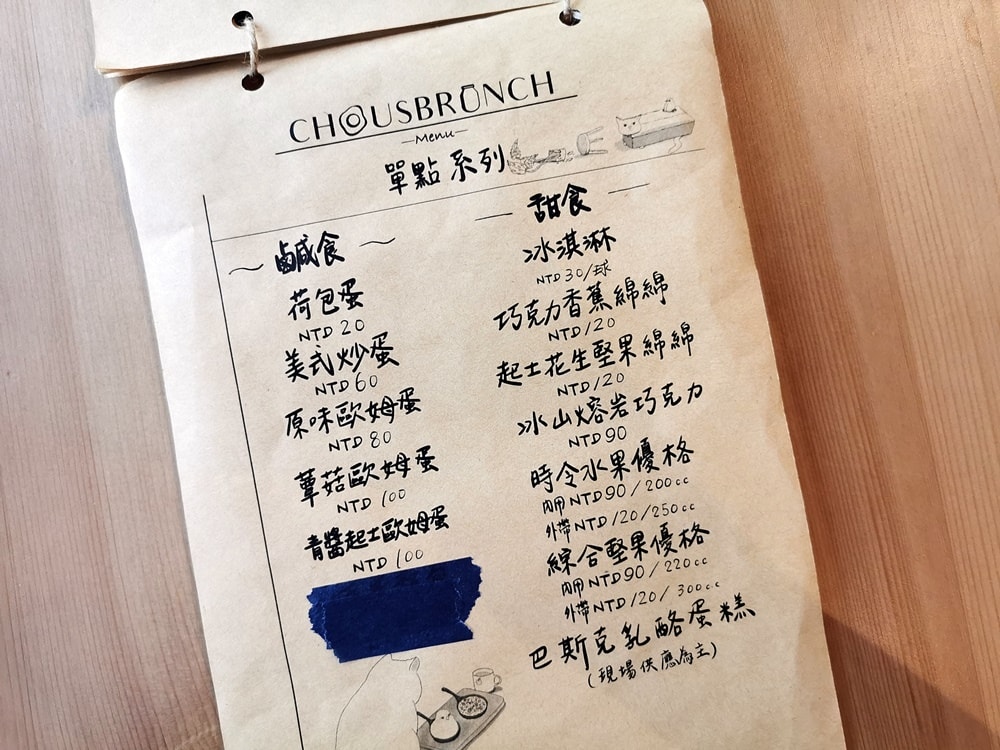 CHOUSBRUNCH
Menu
單點系列
鹹食
荷包蛋
NTD 20
美式炒蛋
NTD 60
原味歐姆蛋
NTD 80
蕈菇歐姆蛋
NTD 100
青醬起士歐姆蛋
NTD 100
甜食
冰淇淋
NTD 30/球
巧克力香蕉綿綿
NTD 120
起士花生堅果綿綿
NTD 120
冰山熔岩巧克力
NTD 90
時令水果優格
內用 NTD 90/200cc
外帶 NTD 120/250cc
綜合堅果優格
內用 NTD 90/220cc
外帶 NTD 120/300cc
巴斯克乳酪蛋糕
(現場供應為主)